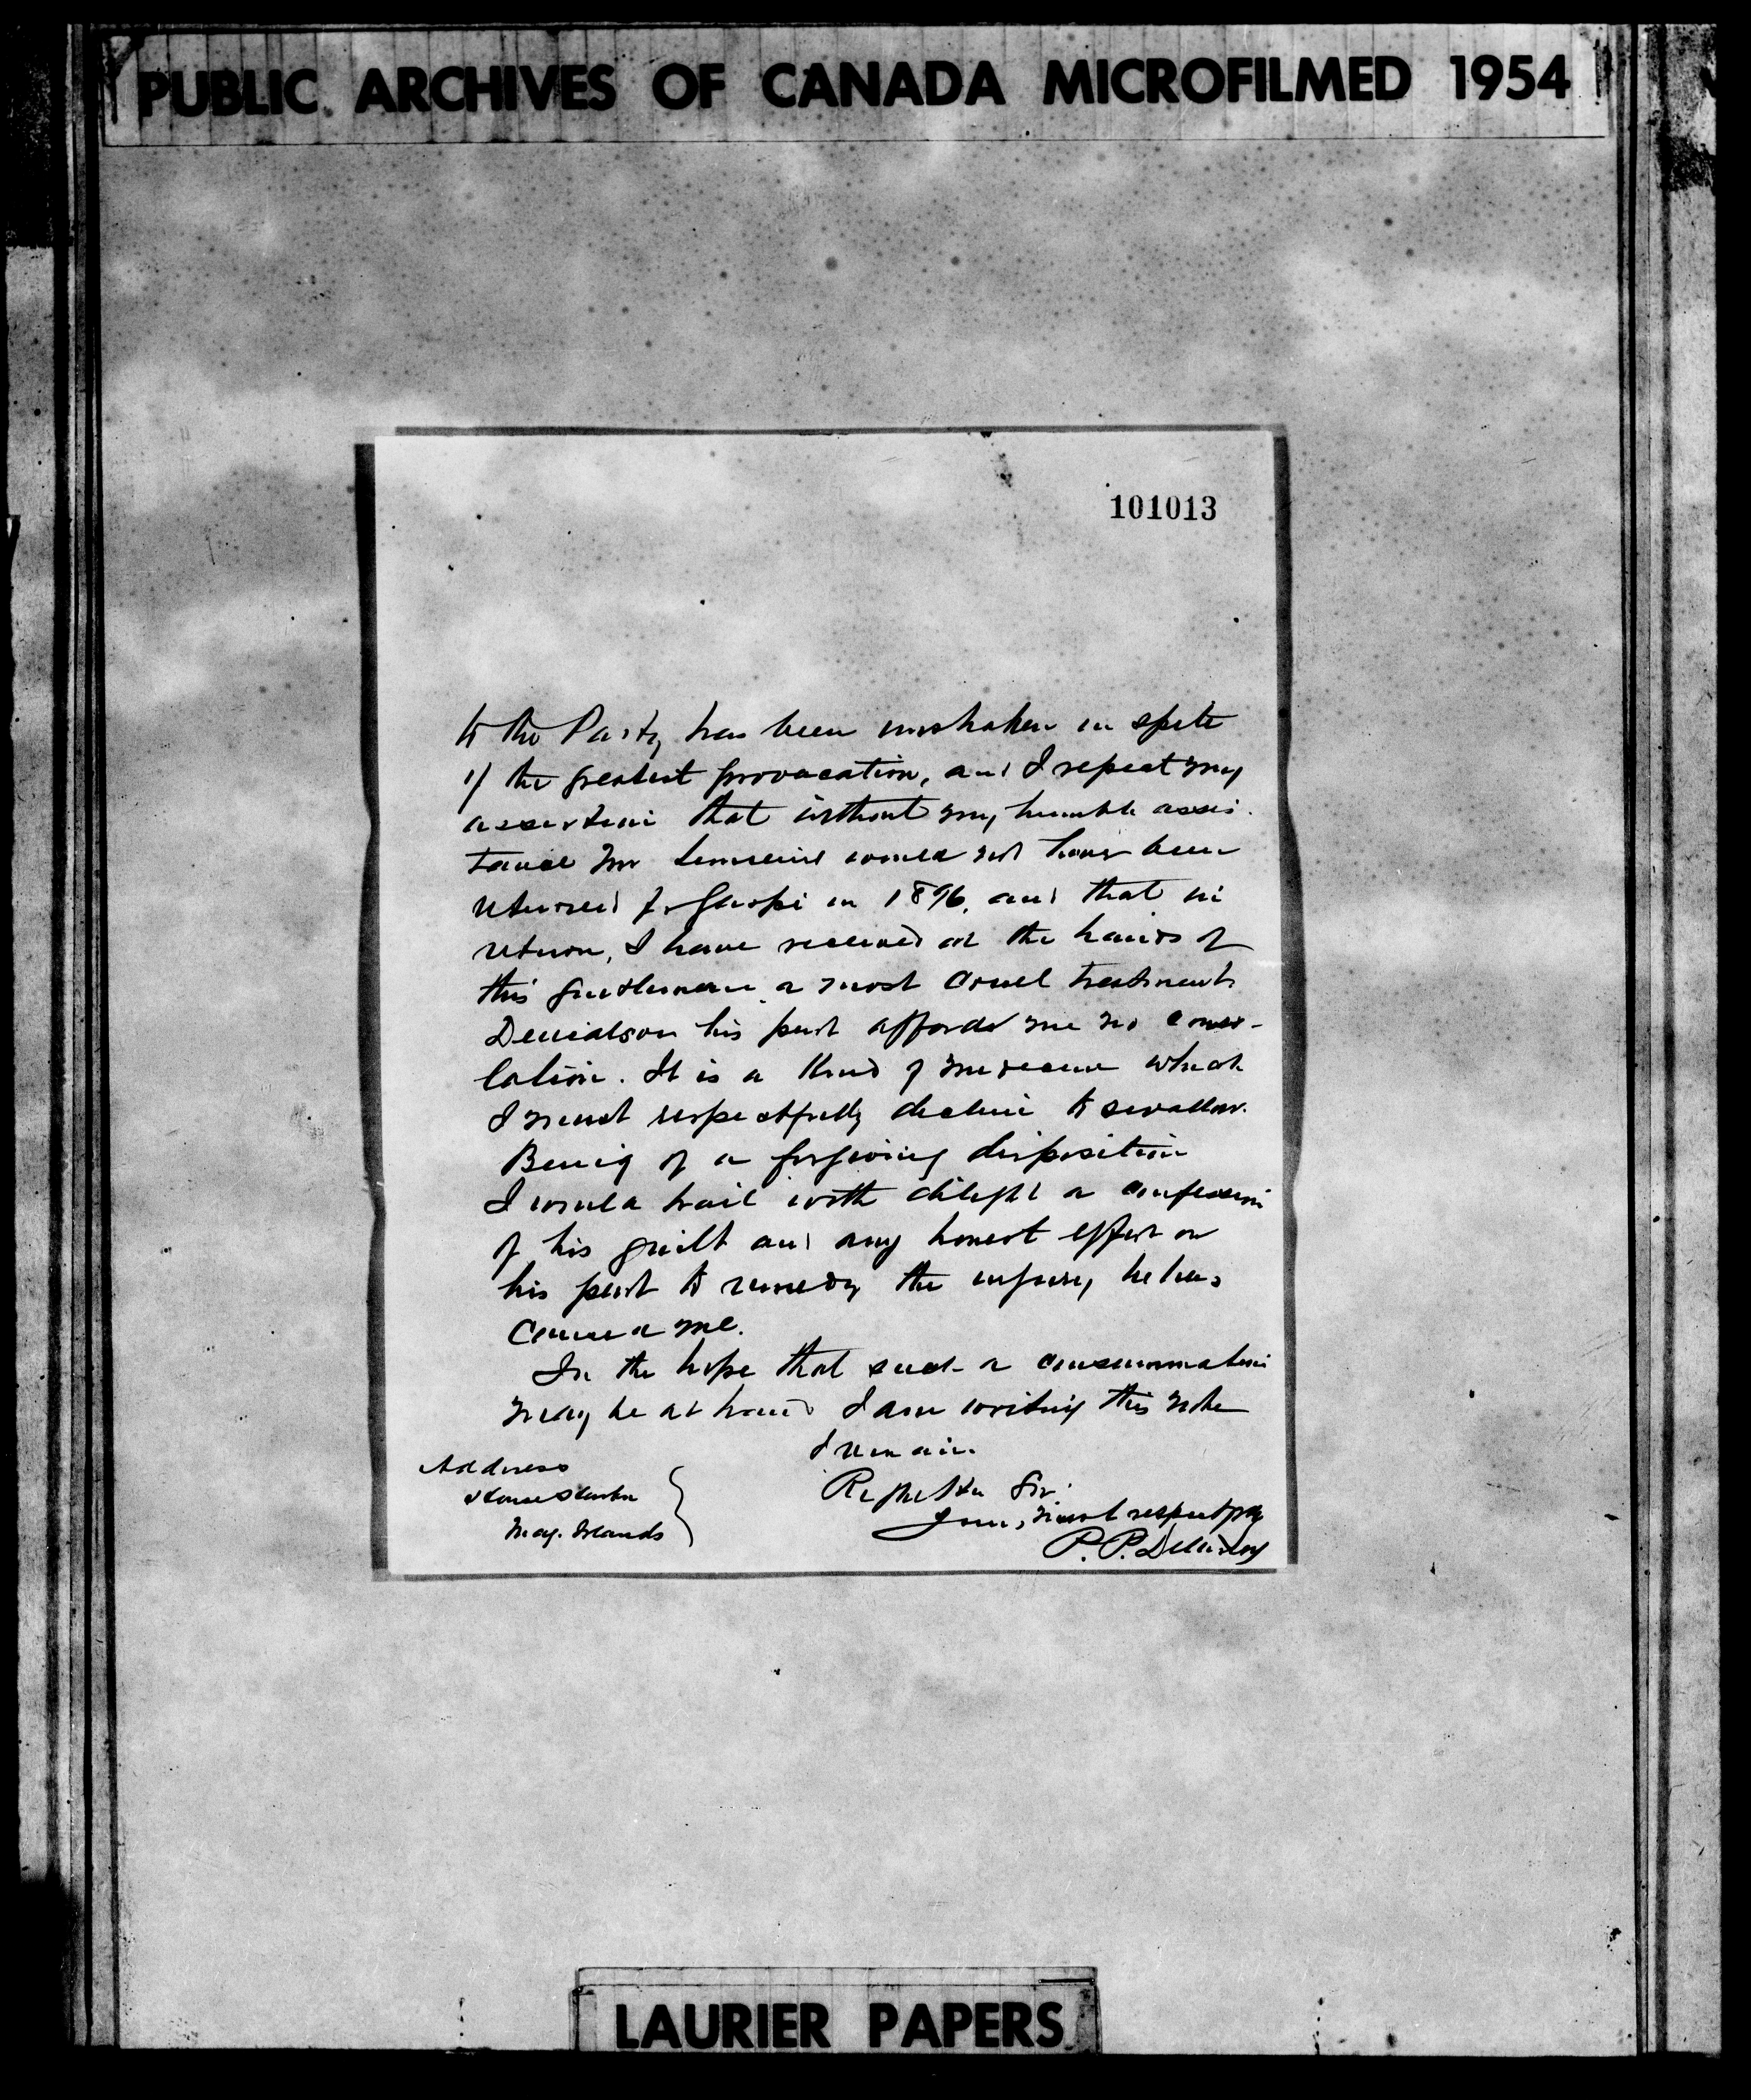 PUBLIC ARCHIVES OF CANADA MICROFILMED 1954
101013
to the Party has been unshaken in spite
of the greatest provocation, and I repeat my
assertion that without my humble assis-
tance Mr Lemieux would not have been
returned for Gaspé in 1896, and that in
return, I have received at the hands of
this gentleman a most cruel treatment.
Denials on his part affords me no conso-
lation. It is a kind of medecine which
I must respectfully decline to swallow.
Being of a forgiving disposition
I would hail with delight a confession
of his guilt and any honest effort on
his part to remedy the injury he has
caused me.
In the hope that such a consummation
may be at hand I am writing this note
I remain.
Address
House Harbor
Mag. Islands
Sir
Yours, most respectfly
P. P. Delaney
LAURIER PAPERS